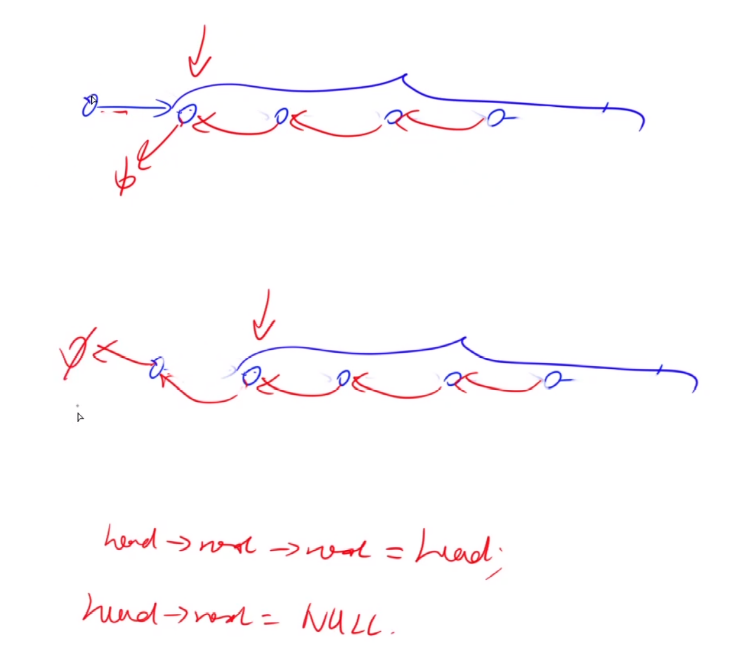 head->next->next = head;
head->next = NULL.